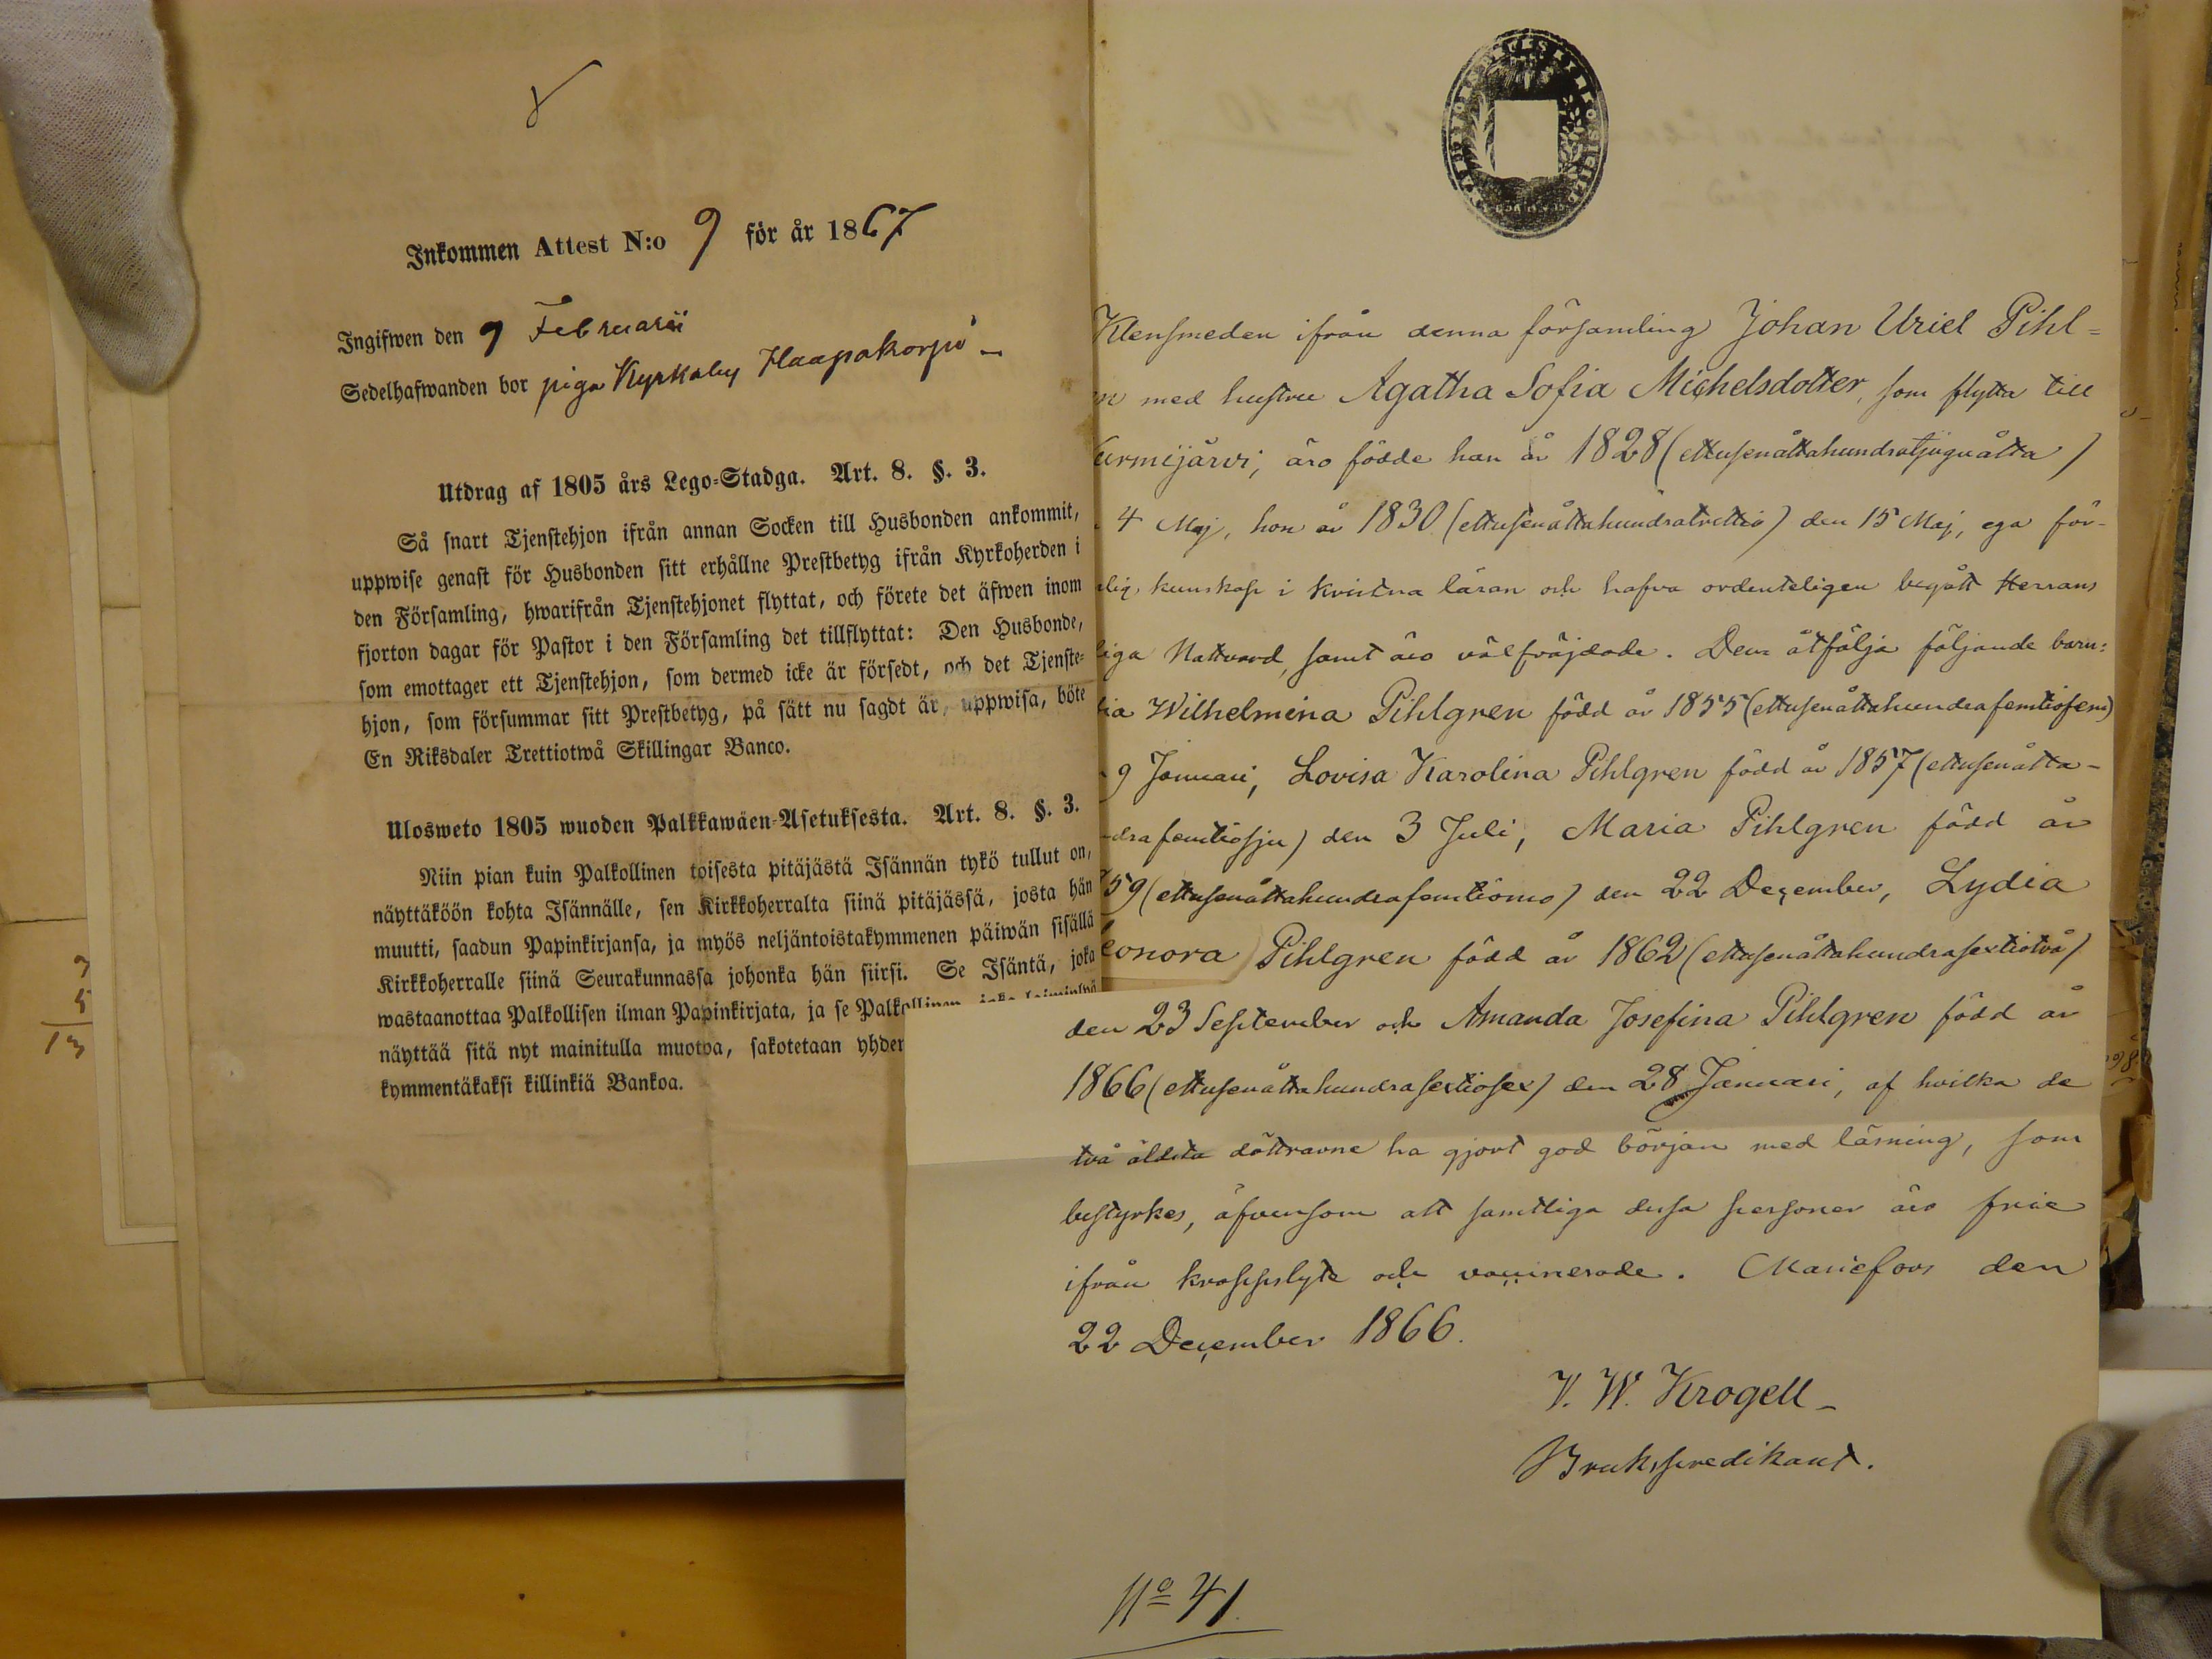 Inkommen Attest N:o 9 för år 1867
Ingifwen den 9 Februarii
Sedelhafwanden bor piga Kyrkoby Haapakorpi
Utdrag af 1805 års Lego-Stadga. Art. 8. §. 3.
Så snart Tjenstehjon ifrån annan Socken till Husbonden ankommit,
uppwise genast för Husbonden sitt erhållne Prestbetyg ifrån Kyrkoherden i
den Församling, hwarifrån Tjenstehjonet flyttat, och förete det äfwen inom
fjorton dagar för Pastor i den Församling det tillflyttat: Den Husbonde,
som emottager ett Tjenstehjon, som dermed icke är försedt, och det Tjenste-
hjon, som försummar sitt Prestbetyg, på sätt nu sagdt är, uppwisa, böte
En Riksdaler Trettiotwå Skillingar Banco.
Ulosweto 1805 wuoden Palkkawäen-Asetuksesta. Art. 8. §. 3.
Niin pian kuin Palkollinen toisesta pitäjästä Isännän tykö tullut on,
näyttäköön kohta Isännälle, sen Kirkkoherralta siinä pitäjässä, josta hän
muutti, saadun Papinkirjansa, ja myös neljäntoistakymmenen päiwän sisällä
Kirkkoherralle siinä Seurakunnassa johonka hän siirsi. Se Isäntä, joka
wastaanottaa Palkollisen ilman Papinkirjata, ja se Palkollinen, joka
näyttää sitä nyt mainitulla muotoa, sakotetaan yhden
kymmentäkaksi killinkiä Bankoa.
Klensmeden ifrån denna församling Johan Uriel Pihl=
n med hustru Agatha Sofia Michelsdotter, som flytta till
urmijärvi, äro födde han år 1828 (ettusenåttahundratjuguåtta)
4 Maj, hon år 1830 (ettusenåttahundratrettio) den 15 Maj, ega för-
lig kunskap i kristna läran och hafva ordenteligen begått Herrans
liga Nattvard, samt äro välfräjdade. Dem åtfölja följande barn:
ia Wilhelmina Pihlgren född år 1855 (ettusenåttahundrafemtiofem)
9 Januari, Lovisa Karolina Pihlgren född år 1857 (ettusenåtta-
dra femtiosju) den 3 Juli, Maria Pihlgren född år
59 (ettusenåttahundrafemtionio) den 22 December, Lydia
eonora Pihlgren född år 1862 (ettusenåttahundrasextiotvå)
den 23 September och Amanda Josefina Pihlgren född år
1866 (ettusenåttahundrasextiosex) den 28 Januari, af hvilka de
två äldsta döttrarne ha gjort god början med läsning, som
bestyrkes, äfvensom att samtliga dessa personer äro frie
ifrån kroppslyte och vaccinerade. Mariefors den
22 December 1866.
V. W. Krogell
Brukspredikant.
No 41.